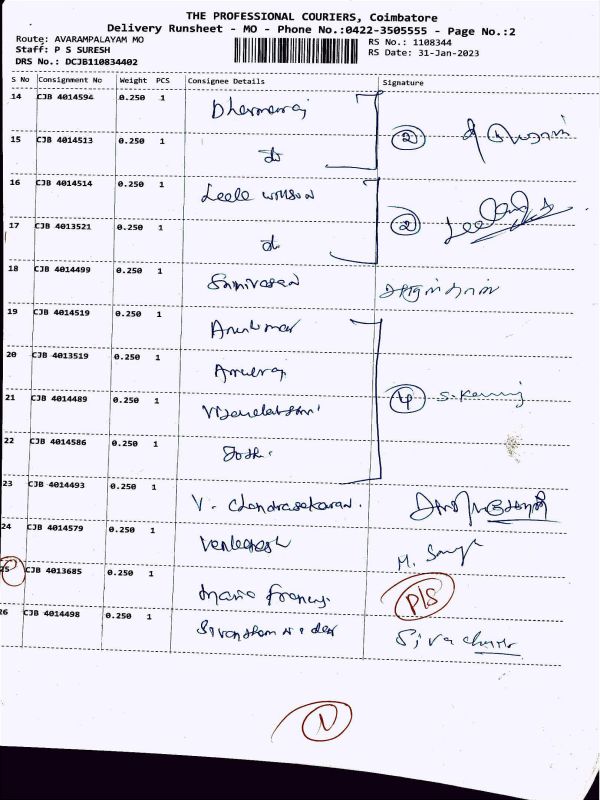 THE PROFESSIONAL COURIERS, Coimbatore
Delivery Runsheet - MO - Phone No.:0422-3505555 - Page No.:2
Route: AVARAMPALAYAM MO
RS No.: 1108344
Staff: P S SURESH
RS Date: 31-Jan-2023
DRS No.: DCJB110834402
S No Consignment No Weight PCS Consignee Details Signature
14 CJB 4014594 0.250 1 Dharmaraj
15 CJB 4014513 0.250 1 do
②
16 CJB 4014514 0.250 1 Leela
17 CJB 4013521 0.250 1 do
②
18 CJB 4014499 0.250 1 Srinivasan
19 CJB 4014519 0.250 1 Arunkumar
20 CJB 4013519 0.250 1
21 CJB 4014489 0.250 1 ④
22 CJB 4014586 0.250 1
23 CJB 4014493 0.250 1 V. Chandrasekaran.
24 CJB 4014579 0.250 1 Venkatesh
25 CJB 4013685 0.250 1 Maria Francis P/S
26 CJB 4014498 0.250 1
N